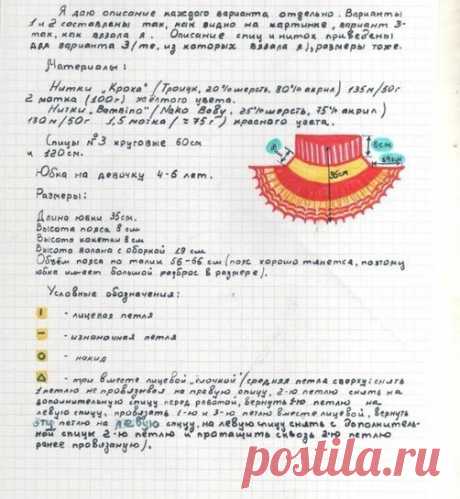 Я даю описание каждого варианта отдельно. Варианты
1 и 2 составлены так, как видно на картинке, вариант 3-
так, как вязала я. Описание спиц и ниток приведены
для варианта 3/те, из которых вязала я), размеры тоже.
Материалы:
Нитки "Кроха" (Троицк, 20% шерсть, 80% акрил) 135м/50г
2 мотка (100г) жёлтого цвета.
Нитки "Bambino" / Nako Baby, 25% шерсть, 75% акрил)
130м/50г 1,5 мотка (≈75г) красного цвета.
Спицы №3 круговые 60см
и 120см.
8см
35см
19см
Юбка на девочку 4-6 лет.
Размеры:
Длина юбки 35см.
Высота пояса 8см
Высота кокетки 8см
Высота волана с оборкой 19см
Объём пояса по талии 56-66 см (пояс хорошо тянется, поэтому
юбка имеет большой разброс в размере).
Условные обозначения:
- лицевая петля
- изнаночная петля
- накид
- три вместе лицевой "ёлочкой" /средняя петля сверху: снять
1 петлю не провязывая на правую спицу, 2-ю петлю снять на
дополнительную спицу перед работой, вернуть 1-ю петлю на
левую спицу, провязать 1-ю и 3-ю петлю вместе лицевой, вернуть
эту петлю на левую спицу, на левую спицу снять с дополнитель-
ной спицы 2-ю петлю и протащить сквозь 2-ю петлю
ранее провязанную).
postila.ru